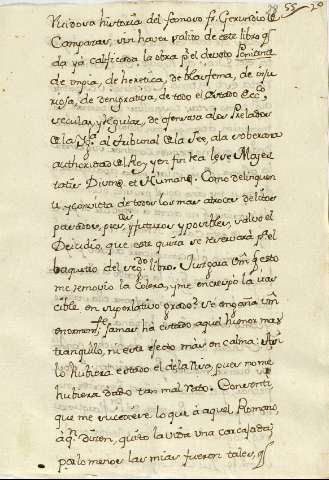 55 20
historia del famoso fr. Gerundio de
Campazas, sin haver salido de este libro qda
da ya calificada la obra pr el devoto Penitente
de impia, de heretica, de blasfema, de inju
riosa, de denigrativa, de todo el Estado Ecco,
secular, y Regular, de ofensiva a los Prelados
de la Yga al tribunal de la Fee, a la soberana
authoridad del Rey, y en fin Rea lesæ Majes
tatis Divinæ et Humanæ. Como delinquen
te, y convicta de todos los mas atroces delitos
pasados, pres.tes, y futuros, y posibles, salvo el
Deicidio, que este quiza se reservará pa el
baquetio del segdo libro. Juzgará Vm qe esto
me removio la Colera, y me encrespó la iras
cible en superlativo grado? Se engaña Vm
enormemte; jamas ha estado aquel humor mas
tranquilo, ni este afecto mas en calma. Assi
lo hubiera estado el de la Risa, pues no me
hubiera dado tan mal Rato. Creve
que me sucediesse lo que à aquel Romano,
à qn dieron, quitó la vida una carcajada;
por lo menos las mias fueron tales, qe